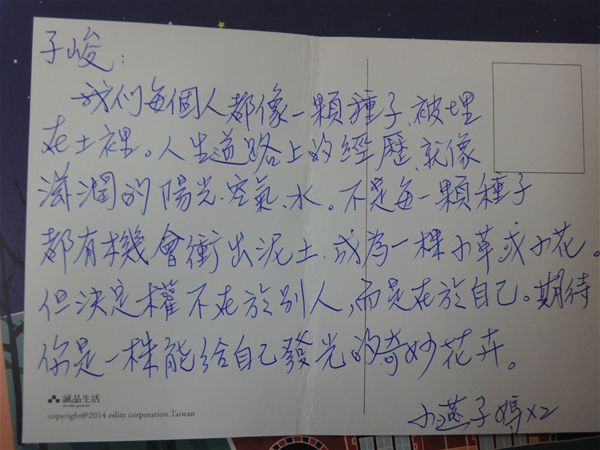 子峻：
我们每個人都像一顆種子、被埋
在土裡。人生道路上的經歷、就像
滋潤的陽光、空氣、水。不是每一顆種子
都有機會衝出泥土、成為一棵小草或小花。
但決定權不在於別人，而是在於自己。期待
你是一株能給自己發光的奇妙花卉。
小燕子媽x2
誠品生活
copyright@2014 eslite corporation.Taiwan